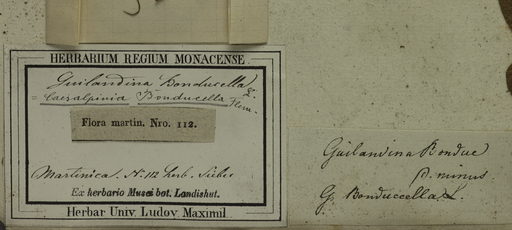 HERBARIUM REGIUM MONACENSE.
Guilandina Bonducella L.
= Caesalpinia Bonducella Flem.
Flora martin. Nro. 112.
Martinica. N. 112 herb. Sieber
Ex herbario Musei bot. Landishut.
Herbar. Univ. Ludov. Maximil.
Guilandina Bonduc
β. minus.
G. Bonduccella L.